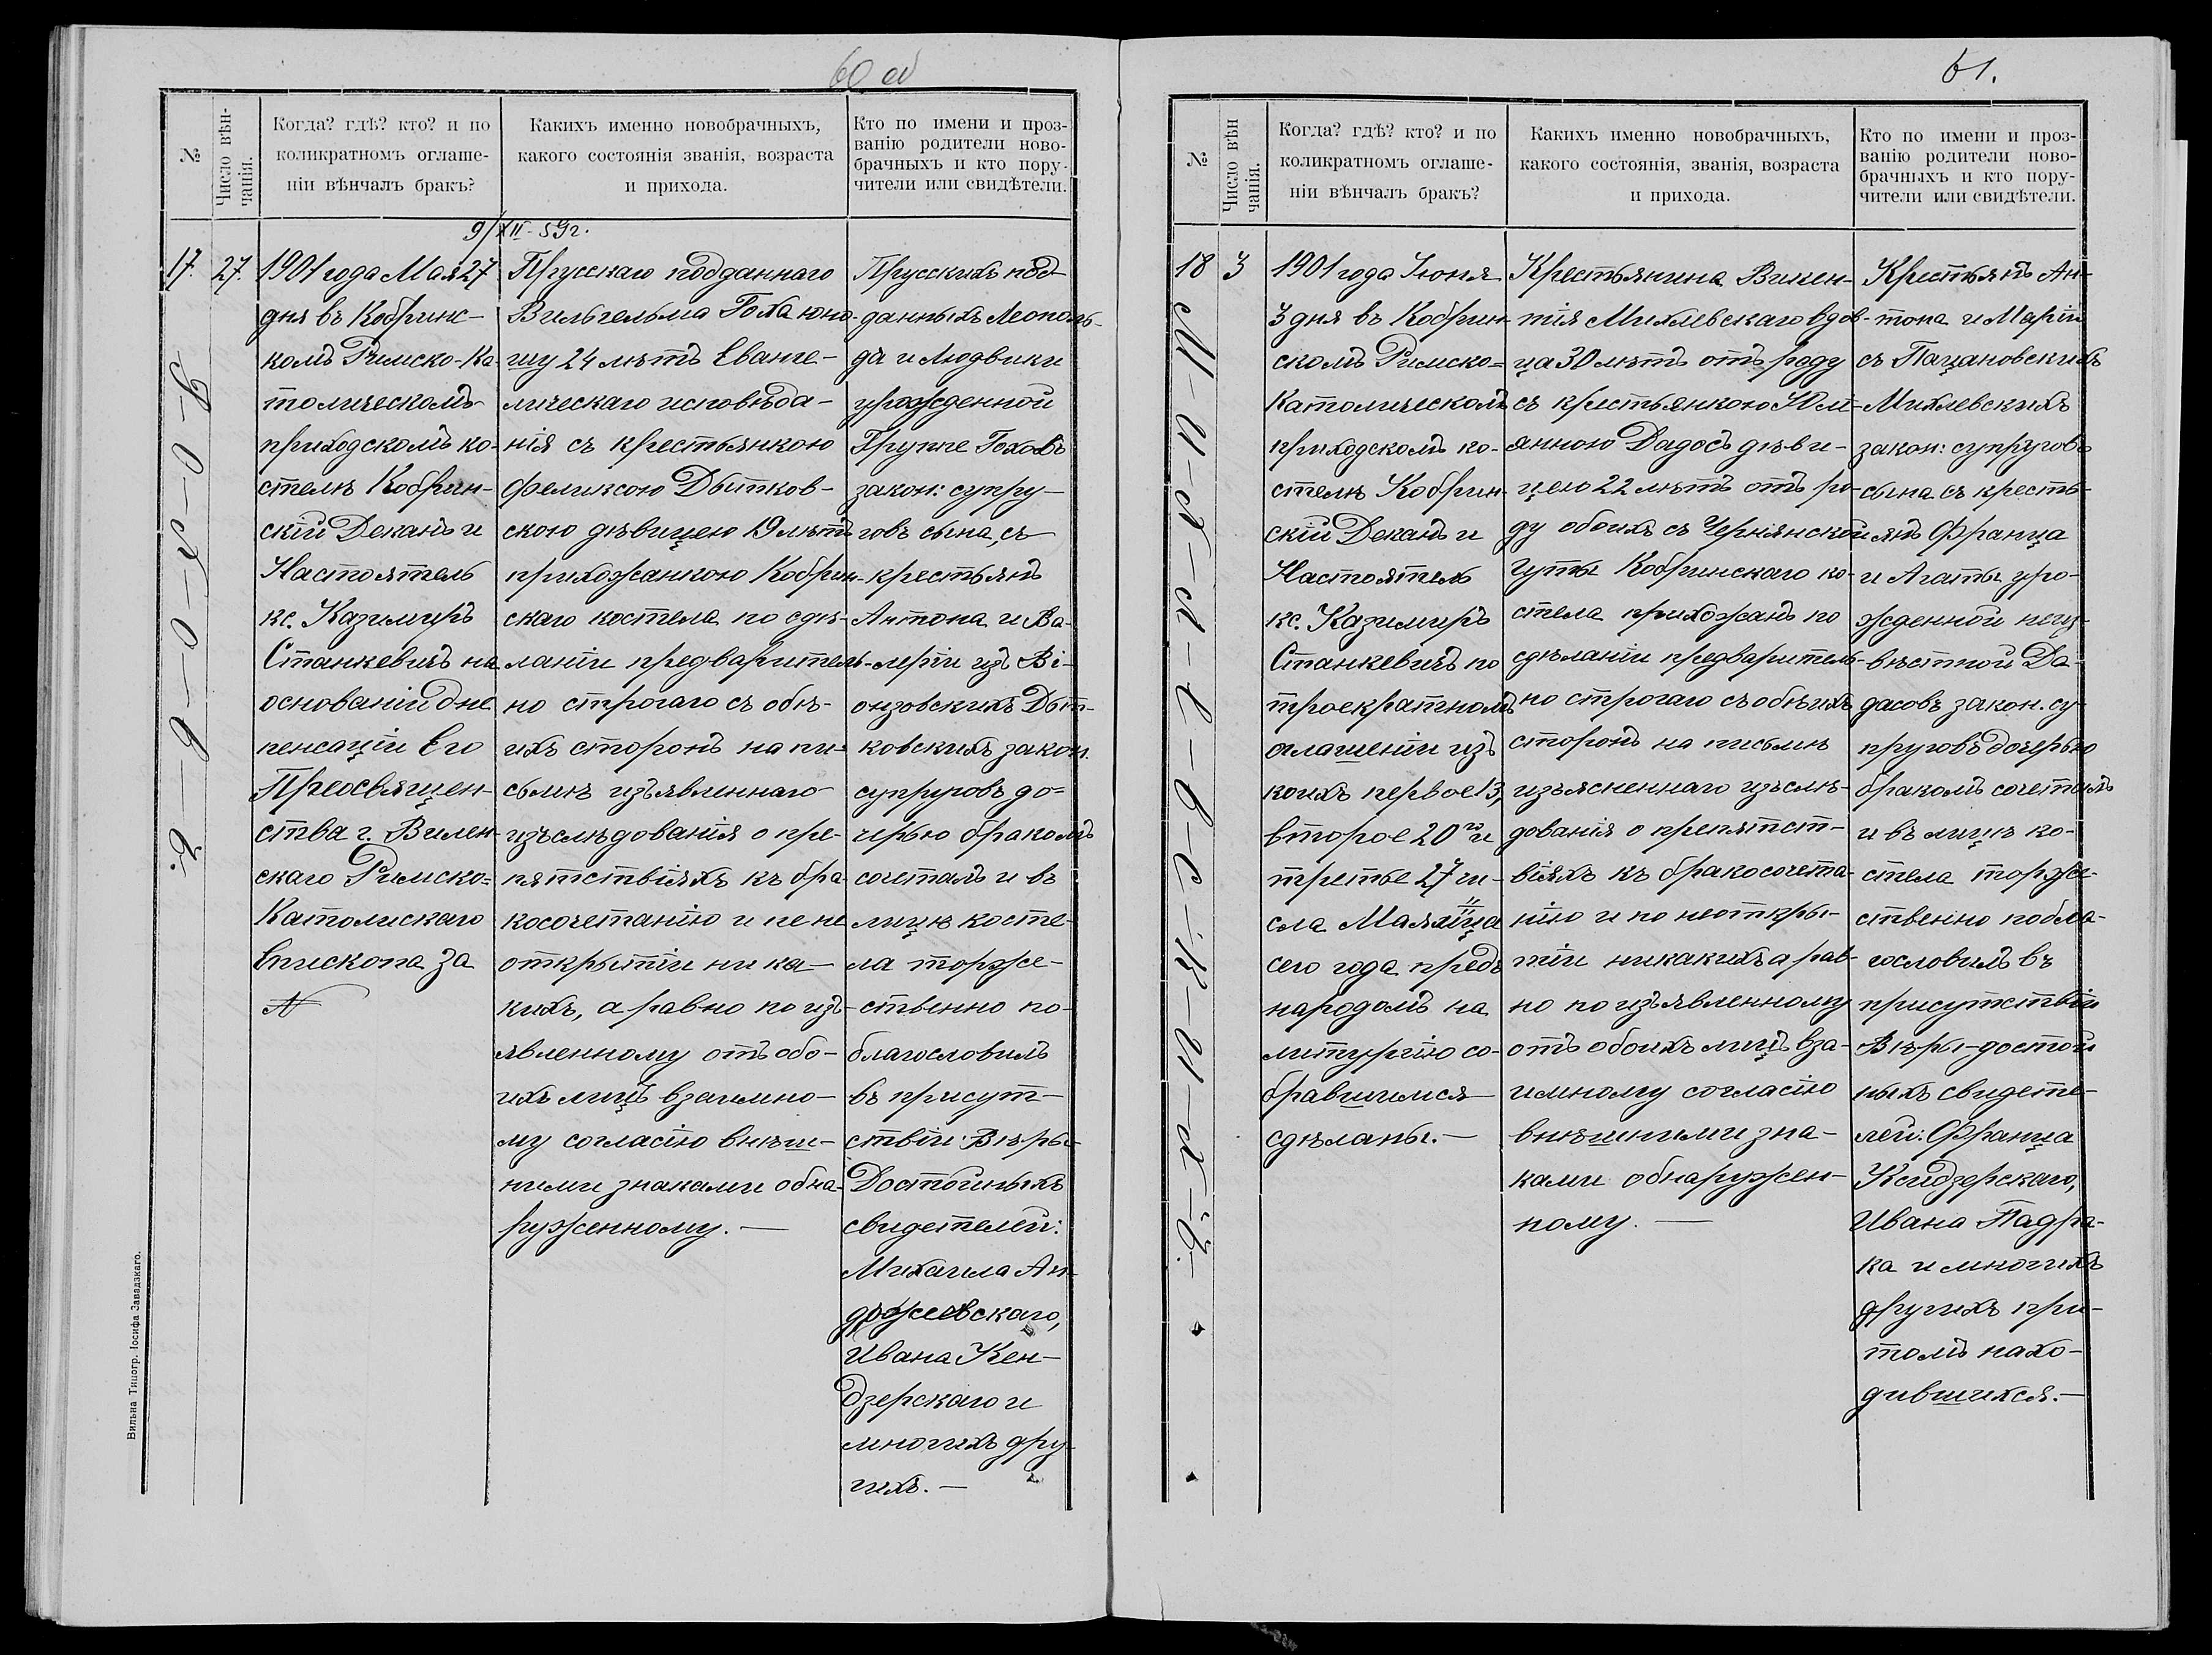 60 об
№
Число вѣн-
чанія.
Когда? гдѣ? кто? и по
коликратномъ оглаше-
ніи вѣнчалъ бракъ?
Какихъ именно новобрачныхъ,
какого состоянія званія, возраста
и прихода.
Кто по имени и проз-
ванію родители ново-
брачныхъ и кто пору-
чители или свидѣтели.
9/XII-59г.
17.
27.
1901 года Мая 27
дня въ Кобринс-
комъ Римско-Ка-
толическомъ
приходскомъ ко-
стелѣ Кобрин-
скій Деканъ и
Настоятель
кс. Казимиръ
Станкевичъ на
основаніи дис
пенсаціи Его
Преосвящен-
ства г. Вилен-
скаго Римско=
Католискаго
Епископа за
№
Прусскаго подданнаго
Вильгельма Гоха юно-
шу 24 лѣтъ Еванге-
лическаго исповѣда-
нія съ крестьянкою
Феликсою Дытков-
скою дѣвицею 19 лѣтъ
прихожанкою Кобрин-
скаго костела по сдѣ-
ланіи предваритель-
но строгаго съ обѣ-
ихъ сторонъ на пи-
сьмѣ изъявленнаго
изъслѣдованія о пре-
пятствіяхъ къ бра-
косочетанію и по не
открытіи ни ка-
кихъ, а равно по изъ-
явленному отъ обо-
ихъ лицъ взаимно-
му согласію внѣш-
ними знаками обна-
руженному. —
Прусскихъ под-
данныхъ Леополь-
да и Людвики
урожденной
Группе Гоховъ
закон: супру-
говъ сына, съ
крестьянъ
Антона и Ва-
леріи изъ Ві-
онзовскихъ Дыт-
ковскихъ закон.
супруговъ до=
черью бракомъ
сочеталъ и въ
лицѣ косте-
ла торже-
ственно по-
благословилъ
въ присут-
ствіи Вѣры-
Достойныхъ
свидетелей:
Михаила Ан-
држеевскаго,
Ивана Кен-
дзерскаго и
многихъ дру-
гихъ. —
Г-о-х-о-в-ъ.
Вильна Типогр. Іосифа Завадзкаго.
61.
№
Число вѣн
чанія.
Когда? гдѣ? кто? и по
коликратномъ оглаше-
ніи вѣнчалъ бракъ?
Какихъ именно новобрачныхъ,
какого состоянія, званія, возраста
и прихода.
Кто по имени и проз-
ванію родители ново-
брачныхъ и кто пору-
чители или свидѣтели.
18
3
1901 года Іюня
3 дня въ Кобрин-
скомъ Римско=
Католическомъ
приходскомъ ко-
стелѣ Кобрин-
скій Деканъ и
Настоятель
кс. Казимиръ
Станкевичъ по
троекратномъ
оглашеніи изъ
коихъ первое 13,
второе 20го и
третье 27 чи-
сла Мая мѣца
сего года предъ
народомъ на
литургію со-
бравшимся
сдѣланы. —
Крестьянина Викен-
тія Михлевскаго вдов-
ца 30 лѣтъ отъ роду
съ крестьянкою Юлі-
янною Дадосъ дѣви-
цею 22 лѣтъ отъ ро-
ду обоихъ съ Чернянской
Гуты Кобринскаго ко-
стела прихожанъ по
сдѣланіи предваритель-
но строгаго съ обѣихъ
сторонъ на письмѣ
изъясненнаго изъслѣ-
дованія о препятст-
віяхъ къ бракосочета-
нію и по неоткры-
тіи никакихъ а рав-
но по изъявленному
отъ обоихъ лицъ вза-
имному согласію
внѣшними зна-
ками обнаружен-
ному. —
Крестьянъ Ан-
тона и Маріи
съ Пацановскихъ
Михлевскихъ
закон: супруговъ
сына съ кресть-
янъ Франца
и Агаты уро-
жденной неиз-
вѣстной Да-
дасовъ закон. су-
пруговъ дочерью
бракомъ сочеталъ
и въ лицѣ ко-
стела торже-
ственно побла-
гословилъ въ
присутствіи
Вѣры-достой
ныхъ свидете-
лей: Франца
Ксидзерскаго,
Ивана Падра-
ка и многихъ
другихъ при-
томъ нахо-
дившихся. —
М-и-х-л-е-в-с-к-и-х-ъ.